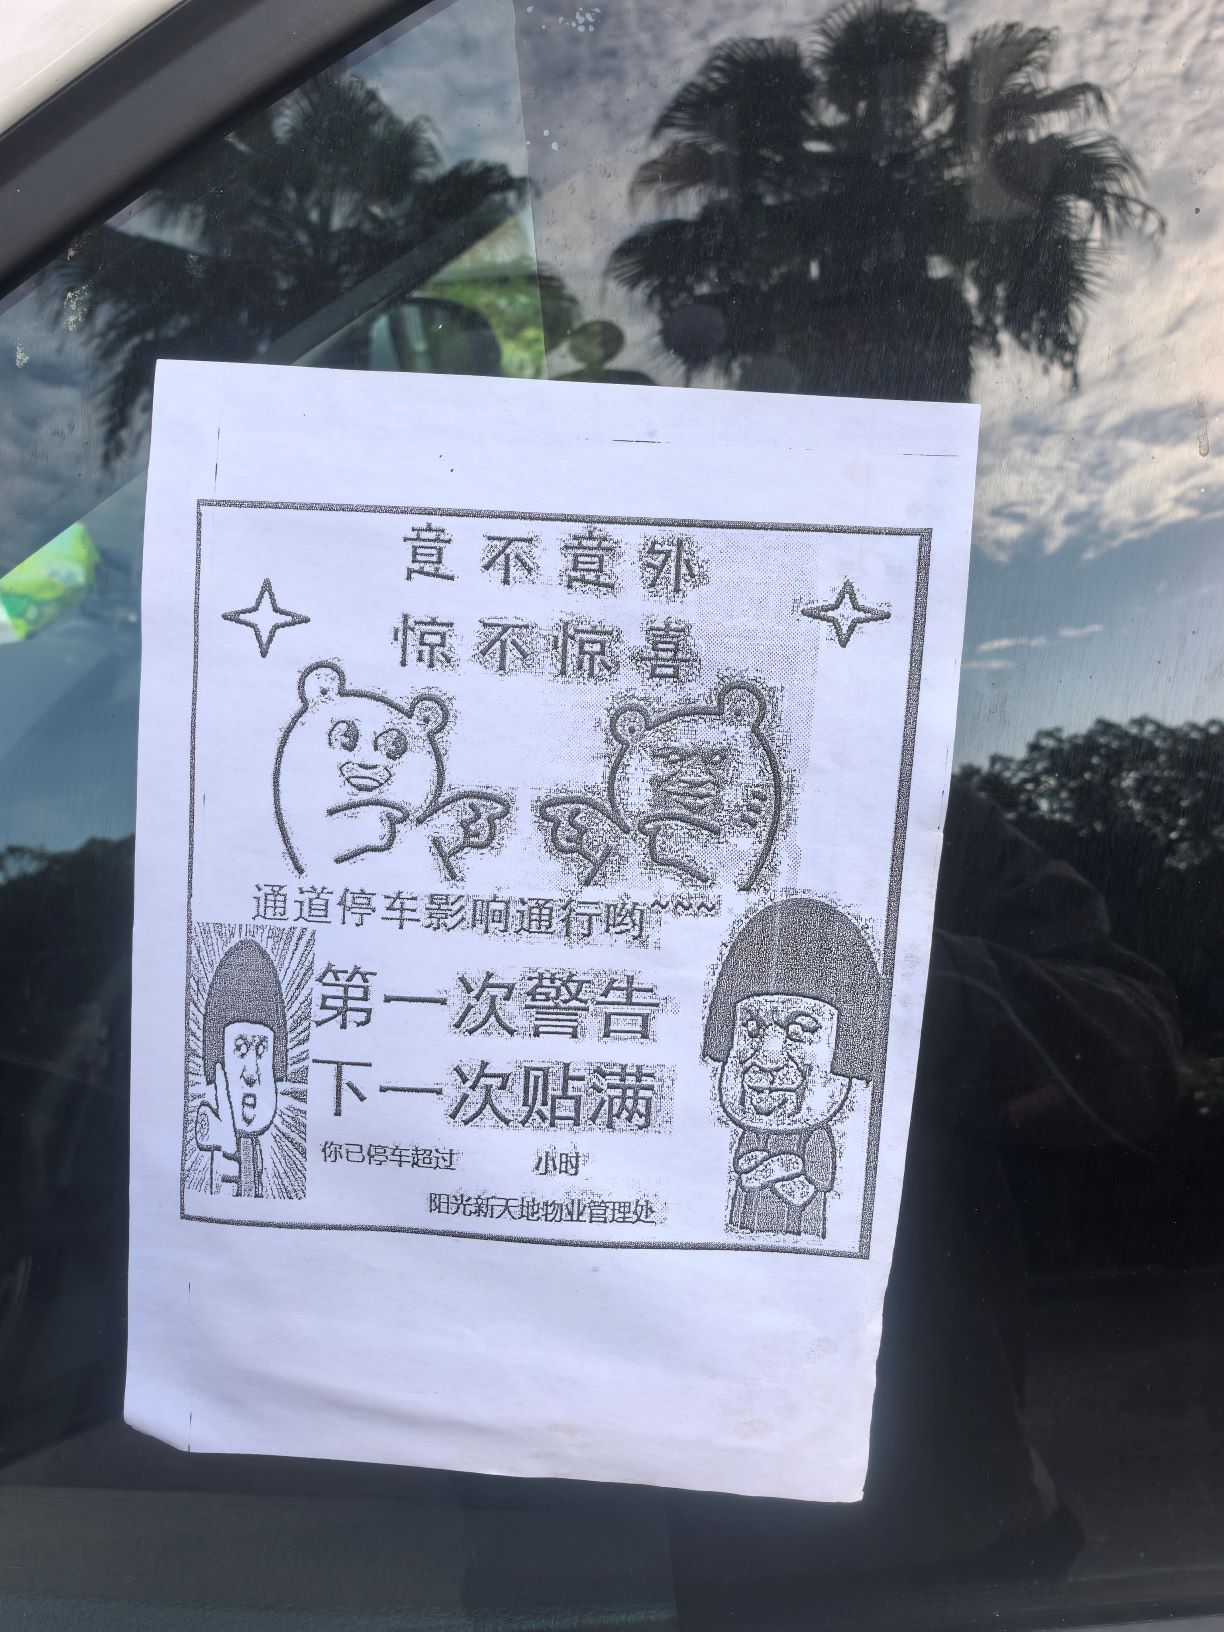 意不意外
惊不惊喜
通道停车影响通行哟~~~
第一次警告
下一次贴满
你已停车超过 小时
阳光新天地物业管理处